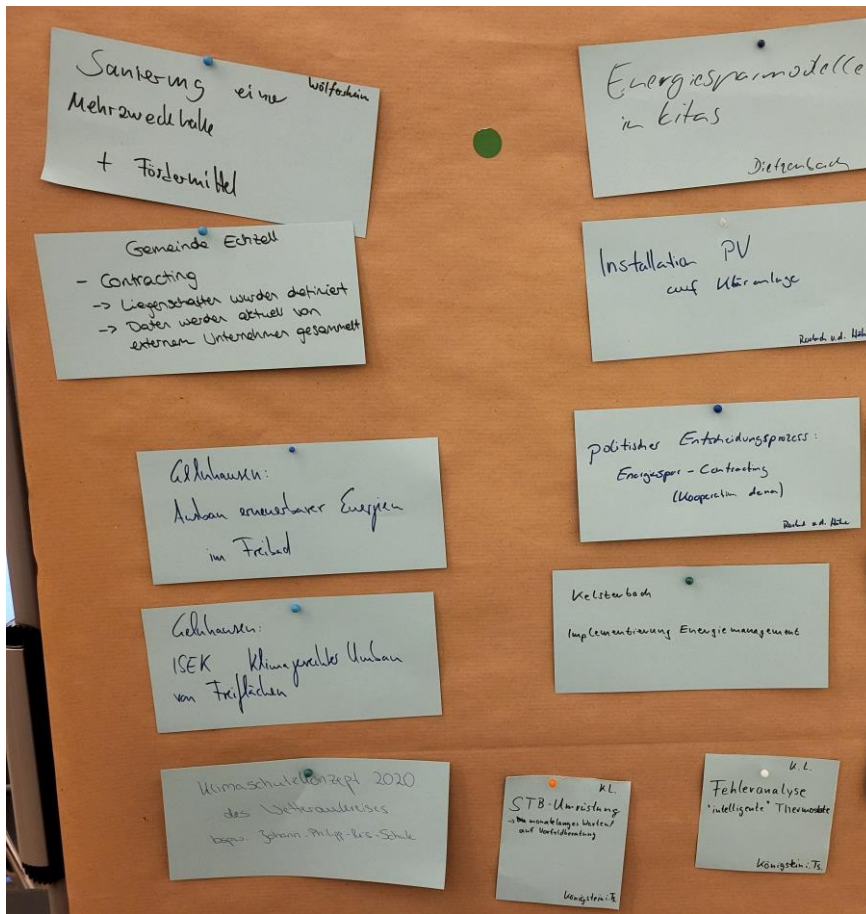 Sanierung eine Wölfersheim
Mehrzweckhalle
+ Fördermittel
Gemeinde Echzell
- Contracting
-> Liegenschaften wurden definiert
-> Daten werden aktuell von
externem Unternehmen gesammelt
Gelnhausen:
Ausbau erneuerbarer Energien
im Freibad
Gelnhausen:
ISEK Klimagerechter Umbau
von Freiflächen
Klimaschutzkonzept 2020
des Wetteraukreises
bspw. Johann-Philipp-Reis-Schule
Energiesparmodelle
in Kitas
Dietzenbach
Installation PV
auf Kläranlage
v.d. Höhe
politischer Entscheidungsprozess:
Energiespar-Contracting
(Kooperation dena)
v.d. Höhe
Kelsterbach
Implementierung Energiemanagement
K.L.
STB-Umrüstung
-> monatelanges Warten
auf Vorfeldberatung
Königstein i. Ts.
K.L.
Fehleranalyse
"intelligente" Thermostate
Königstein i. Ts.